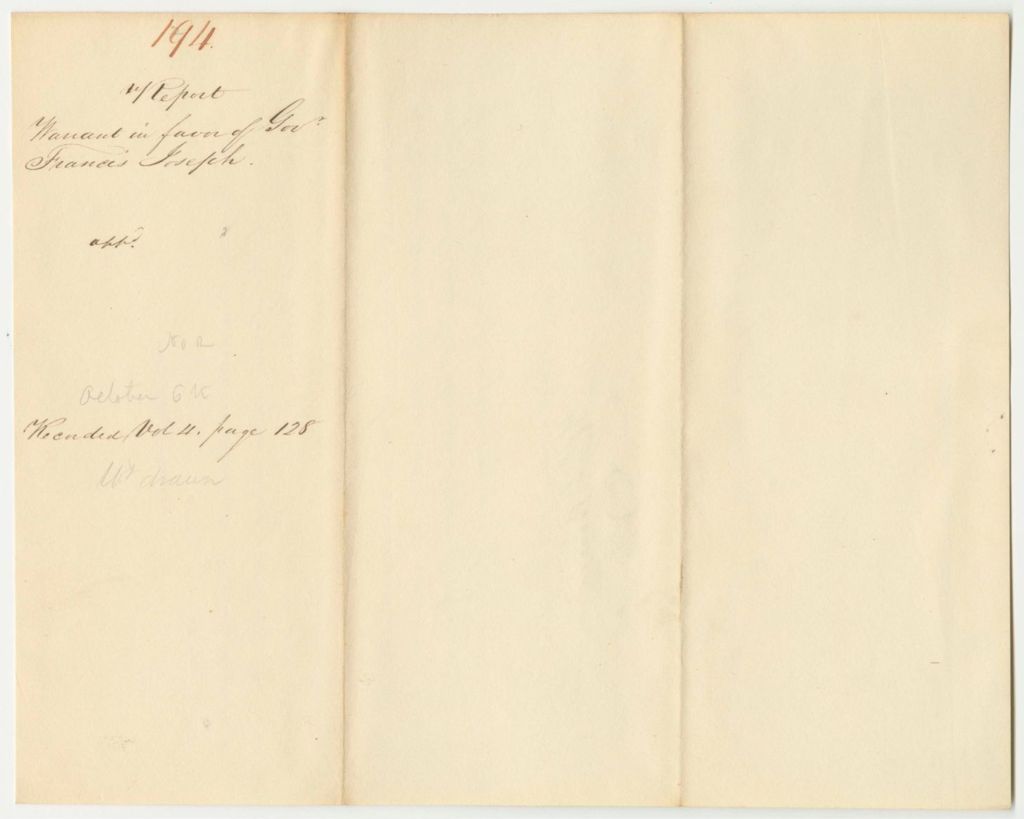 194.
Report
Warrant in favor of Govr
Francis Joseph.
appd.
October 6th
Recorded Vol 4. page 128
Wt drawn